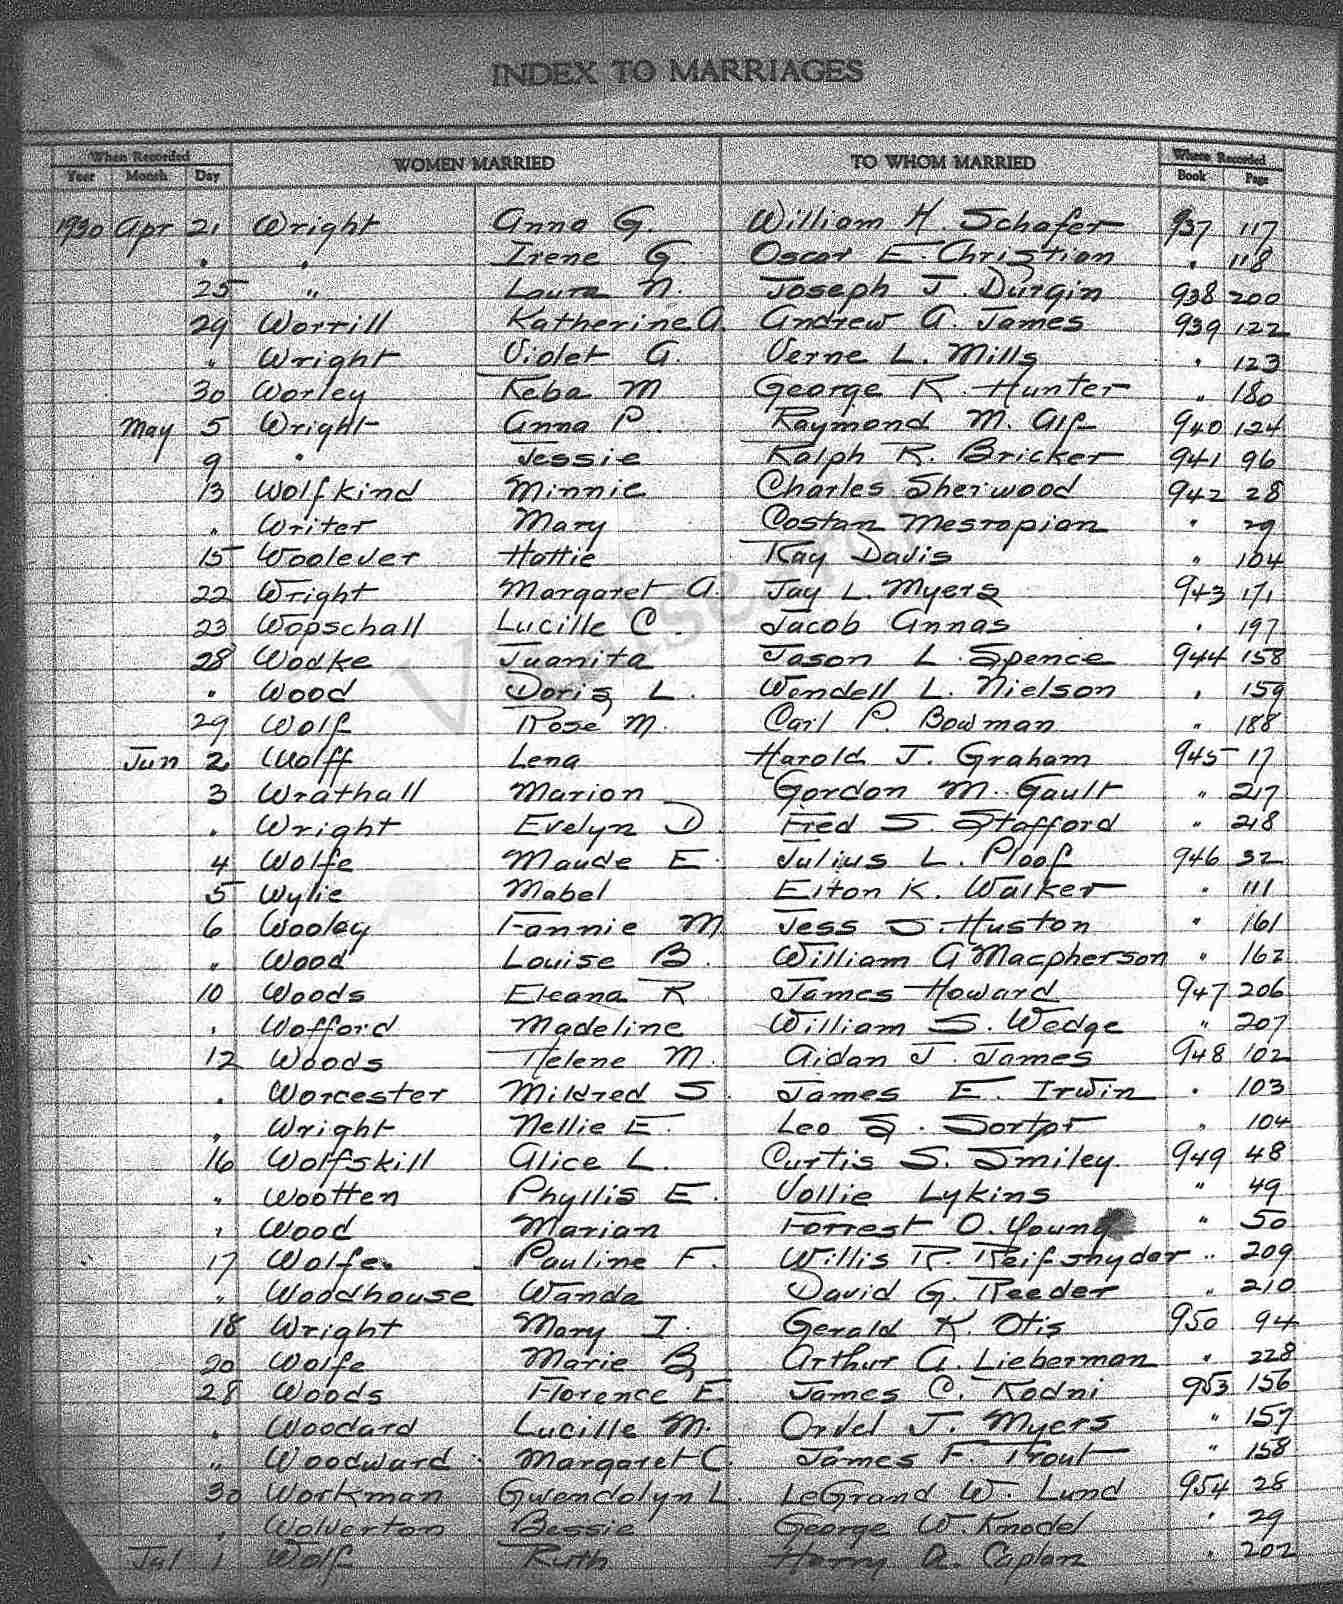 INDEX TO MARRIAGES
When Recorded WOMEN MARRIED TO WHOM MARRIED Where Recorded
Year Month Day Book Page
1930 Apr 21 Wright Anna G. William H. Schafer 937 117
" " Irene G. Oscar E. Christian " 118
25 " Laura N. Joseph J. Durgin 938 200
29 Worrill Katherine A. Andrew A. James 939 122
" Wright Violet G. Verne L. Mills " 123
30 Worley Reba M George R. Hunter " 180
May 5 Wright Anna P. Raymond M. Alf 940 124
9 " Jessie Ralph R. Bricker 941 96
13 Wolfkind Minnie Charles Sherwood 942 28
" Writer Mary Costan Mesropian " 29
15 Woolever Hattie Ray Davis " 104
22 Wright Margaret A. Jay L. Myers 943 171
23 Wopschall Lucille C. Jacob Annas " 197
28 Wodke Juanita Jason L. Spence 944 158
" Wood Doris L. Wendell L. Nielson " 159
29 Wolf Rose M. Carl P. Bowman " 188
Jun 2 Wolff Lena Harold J. Graham 945 17
3 Wrathall Marion Gordon M. Gault " 217
" Wright Evelyn D Fred S. Stafford " 218
4 Wolfe Maude E. Julius L. Ploof 946 32
5 Wylie Mabel Elton K. Walker " 111
6 Wooley Fannie M Jess S. Huston " 161
" Wood Louise B. William A Macpherson " 162
10 Woods Eleana R James Howard 947 206
" Wofford Madeline William S. Wedge " 207
12 Woods Helene M. Aidan J. James 948 102
" Worcester Mildred S James E. Irwin " 103
" Wright Nellie E. Leo S. " 104
16 Wolfskill Alice L. Curtis S. Smiley 949 48
" Wootten Phyllis E. Vollie Lykins " 49
" Wood Marian Forrest O. Young " 50
17 Wolfe Pauline F. Willis R. Reifsnyder " 209
" Woodhouse Wanda David G. Reeder " 210
18 Wright Mary I. Gerald K. Otis 950 94
20 Wolfe Marie B Arthur A. Lieberman " 228
28 Woods Florence E. James C. Rodni 953 156
" Woodard Lucille M. Ordel J. Myers " 157
" Woodward Margaret C. James F. Trout " 158
30 Workman Gwendolyn L. LeGrand W. Lund 954 28
" Wolverton Bessie George W. Knodel " 29
Jul 1 Wolf Ruth Harry A. Caplan " 202